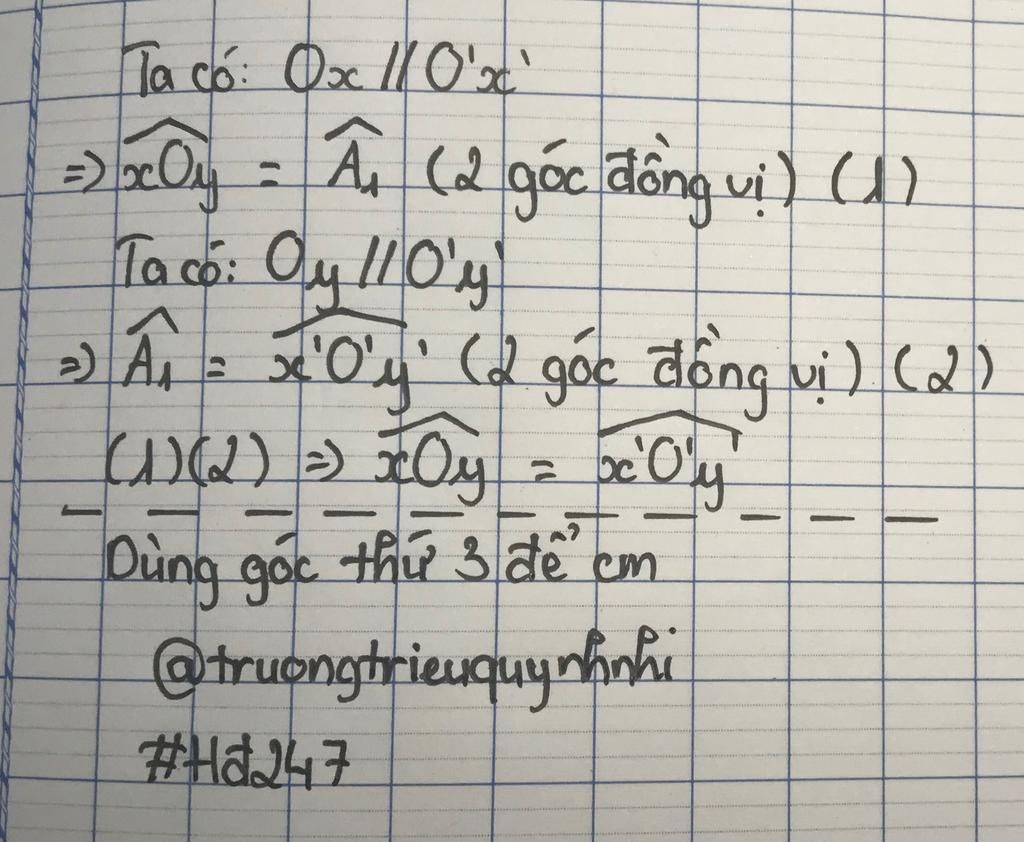 Ta có: Ox // O'x'
=> xOy = A1 (2 góc đồng vị) (1)
Ta có: Oy // O'y'
=> A1 = x'O'y' (2 góc đồng vị) (2)
(1)(2) => xOy = x'O'y'
Dùng góc thứ 3 để cm
@truongtrieuquynhnhi
#Hđ247